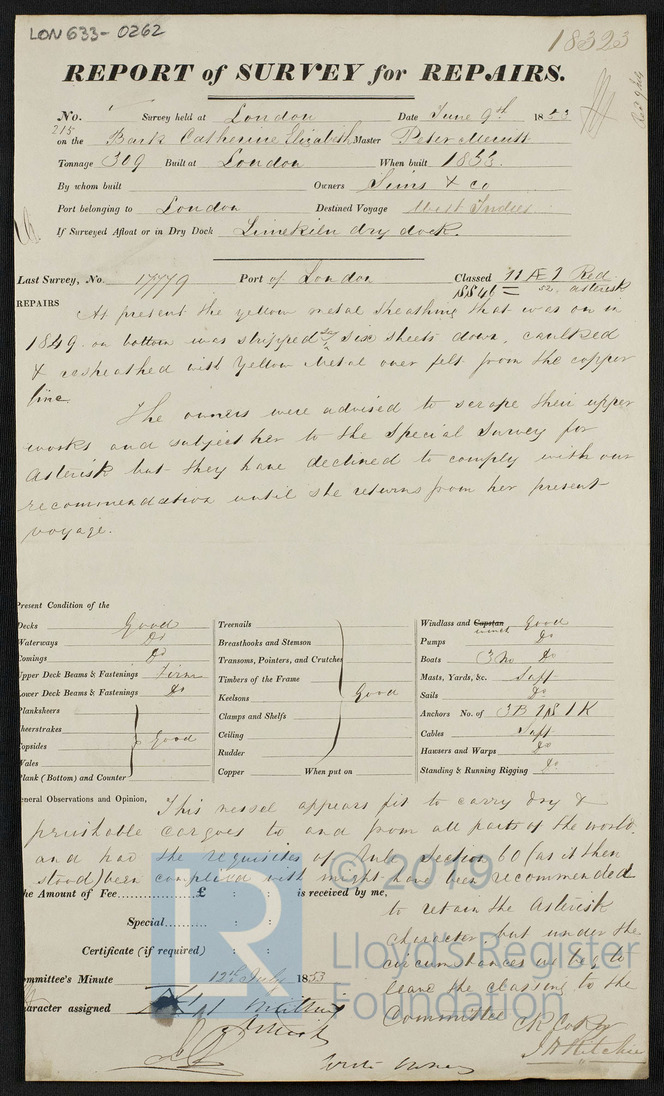 LON 633-0262
18323
REPORT of SURVEY for REPAIRS.
No. Survey held at London Date June 9th 1853
215
on the Bark Catherine Elizabeth Master Peter Merritt
Tonnage 309 Built at London When built 1833.
By whom built Owners Sims & co
Port belonging to London Destined Voyage West Indies
If Surveyed Afloat or in Dry Dock Limekiln dry dock.
Last Survey, No. 17779 Port of London Classed 11 Æ 1 Red
52. asterisk
REPAIRS
At present the yellow metal sheathing that was on in
1849 on bottom was stripped six sheets down, caulked
& resheathed with Yellow Metal over felt from the copper
line.
The owners were advised to scrape their upper
works and subject her to the Special Survey for
Asterisk but they have declined to comply with our
recommendation until she returns from her present
voyage.
Present Condition of the
Decks Good
Waterways Do
Comings Do
Upper Deck Beams & Fastenings Firm
Lower Deck Beams & Fastenings Do
Planksheers
Sheerstrakes
Topsides Good
Wales
Plank (Bottom) and Counter
Treenails
Breasthooks and Stemson
Transoms, Pointers, and Crutches
Timbers of the Frame
Keelsons Good
Clamps and Shelfs
Ceiling
Rudder
Copper When put on
Windlass and Capstan Good
winch
Pumps Do
Boats (3 No Do
Masts, Yards, &c. Suff
Sails Do
Anchors No. of 3B 1S 1K
Cables Suff
Hawsers and Warps Do
Standing & Running Rigging Do
General Observations and Opinion, This vessel appears fit to carry dry &
perishable cargoes to and from all parts of the world.
and had the requisites of Rule Section 60 (as it then
stood) been complied with might have been recommended
the Amount of Fee £ : : is received by me,
to retain the Asterisk
Special : :
character but under the
Certificate (if required) : :
circumstances we beg to
Committee's Minute 12th July 1853
leave the classing to the
Character assigned
Committee
J H Ritchie
write owners
© 2019
Lloyd's Register
Foundation
LR